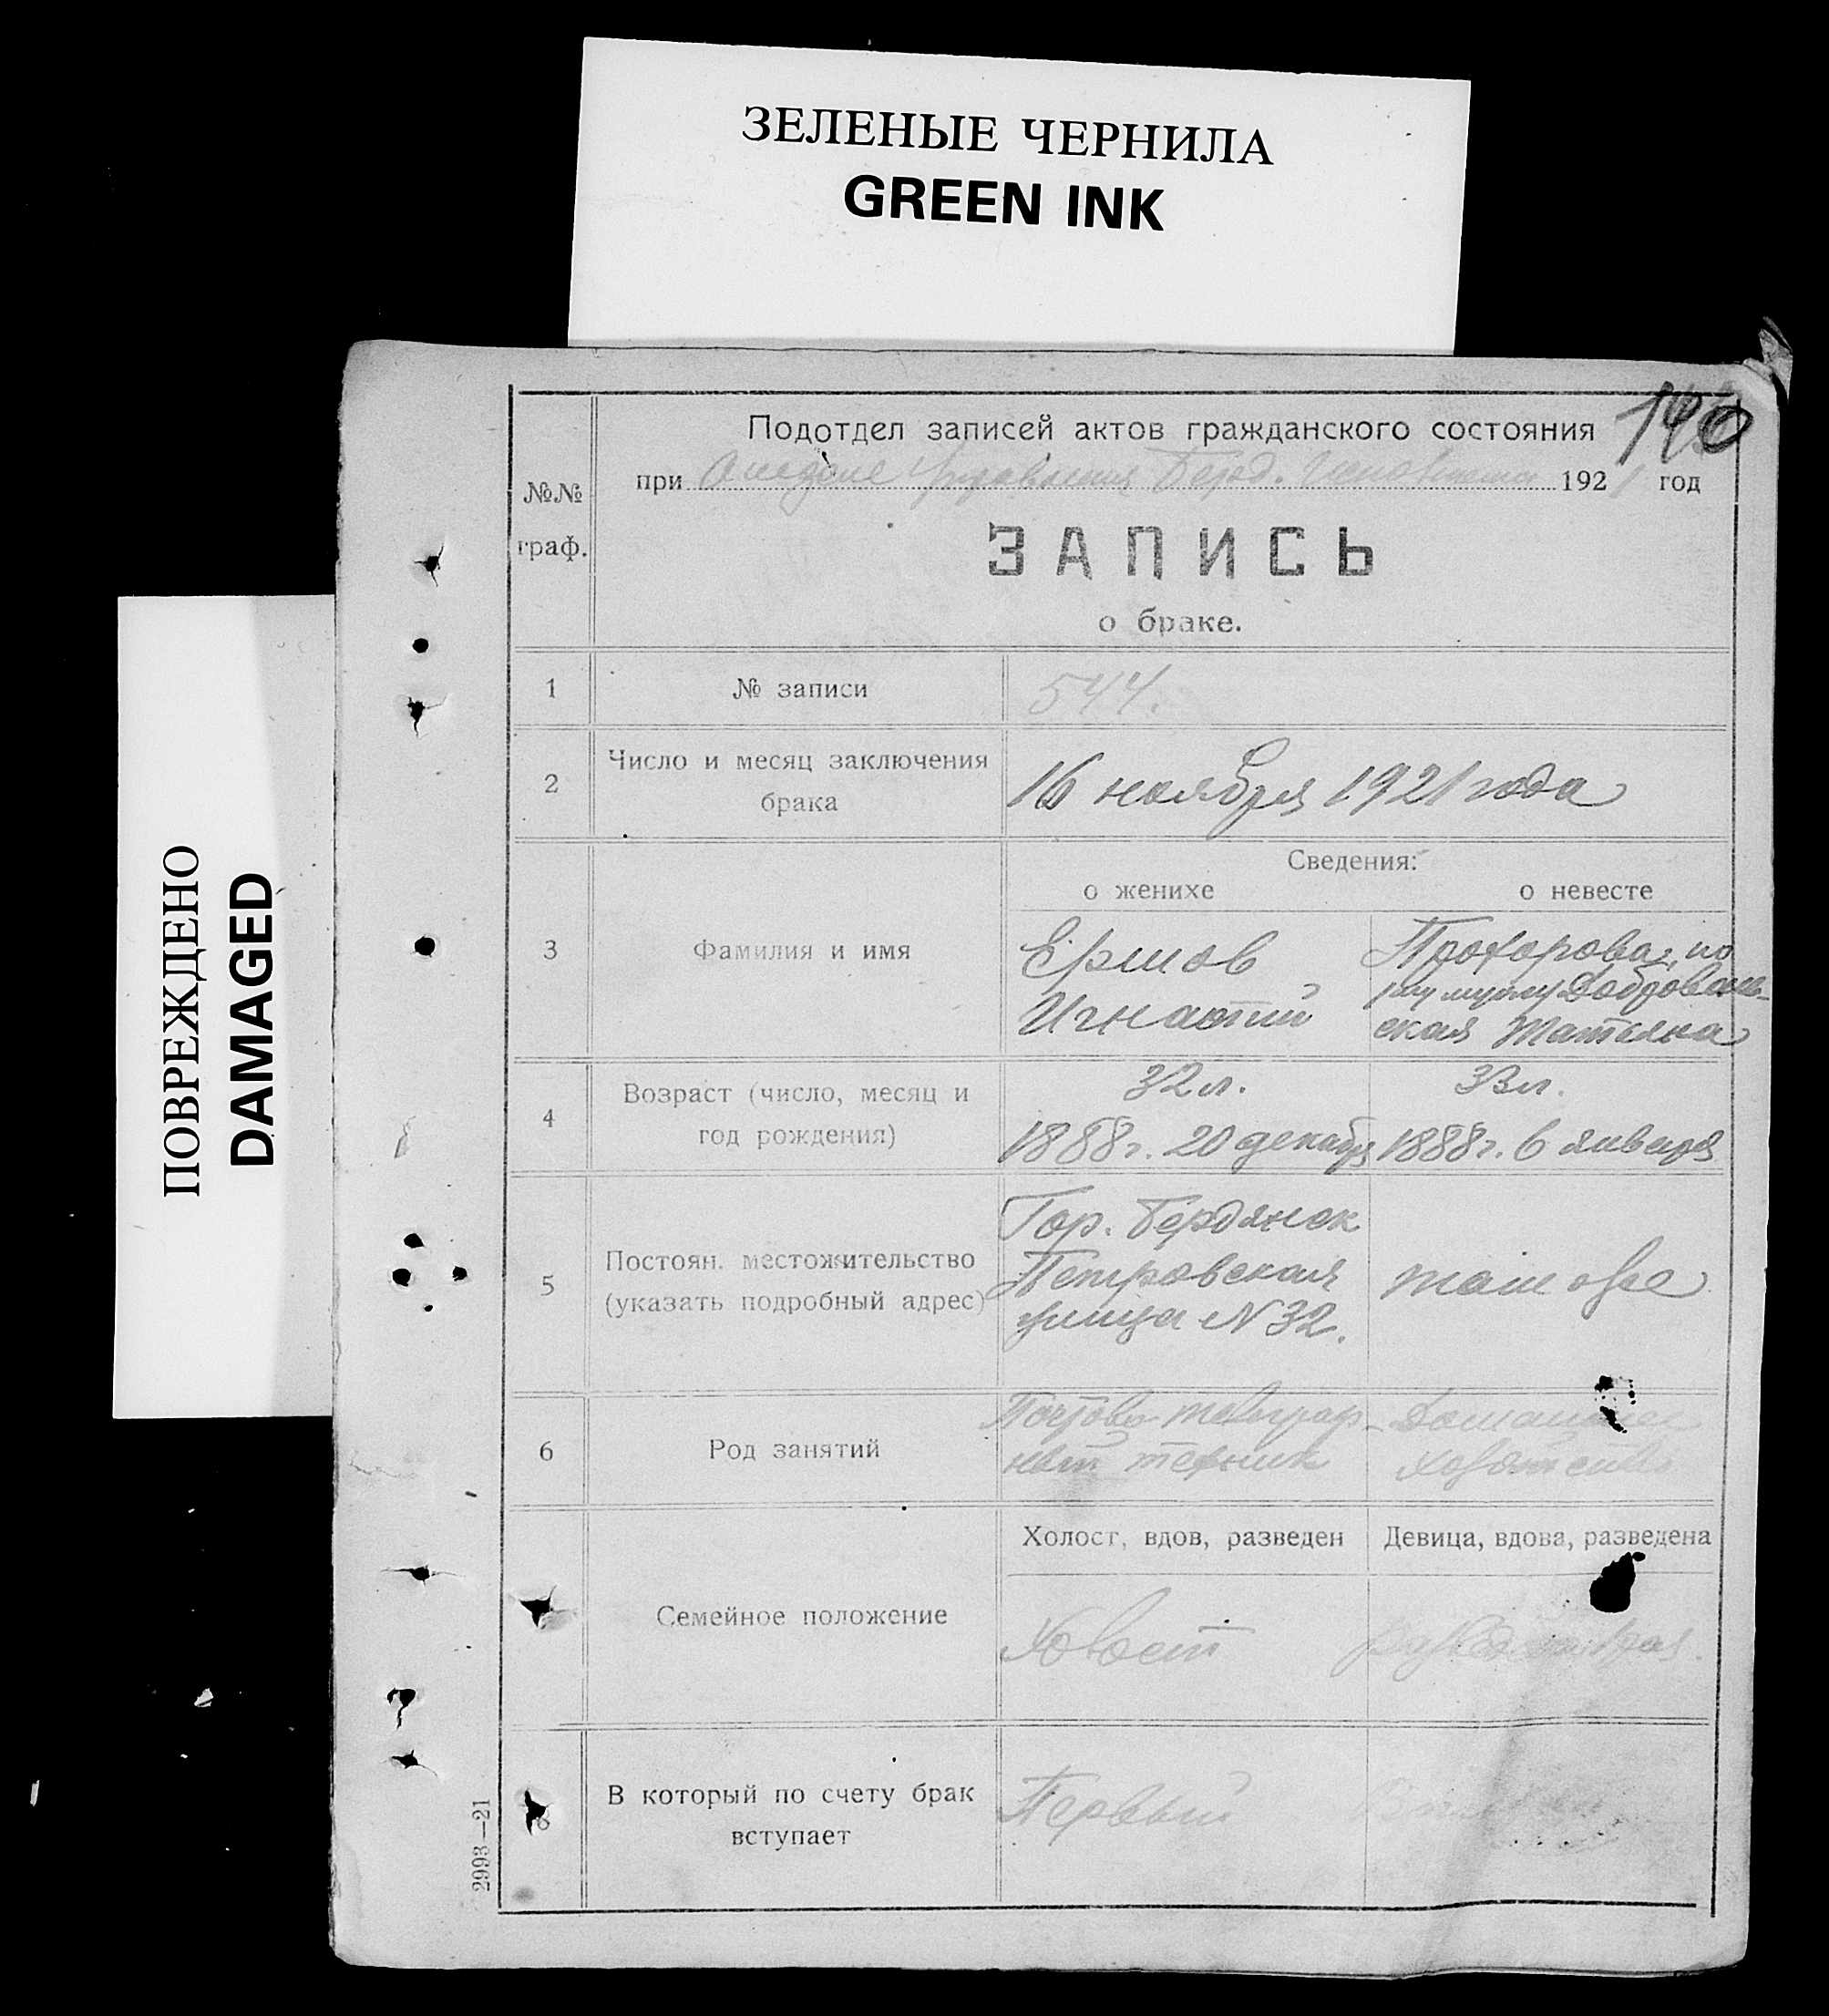 ЗЕЛЕНЫЕ ЧЕРНИЛА
GREEN INK
ПОВРЕЖДЕНО
DAMAGED
140
Подотдел записей актов гражданского состояния
при Отделе Управления Берд. Исполкома 1921 год
№№
граф.
ЗАПИСЬ
о браке.
1 № записи 544.
2 Число и месяц заключения
брака
16 ноября 1921 года
Сведения:
о женихе о невесте
3 Фамилия и имя
Ершов
Игнатий
Прохорова, по
мужу Добровольс-
ская Татьяна
4 Возраст (число, месяц и
год рождения)
32 л.
1888 г. 20 декабря
33 л.
1888 г. 6 января
5 Постоян. местожительство
(указать подробный адрес)
Гор. Бердянск
Петровская
улица N 32.
там же
6 Род занятий
Почтово телеграф-
ный техник
Домашнее
хозяйство
Холост, вдов, разведен Девица, вдова, разведена
Семейное положение
Холост
8 В который по счету брак
вступает
Первый
2993—21